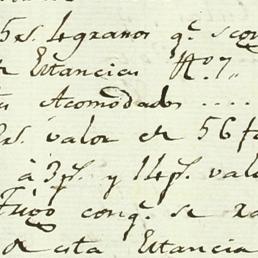 5rs. legranos q.e s con
Estancia N.o 7,,
Acomodados ....
rs. valor de 56 fa
à 3ps. y 11ps. val
Trigo conq.e se ra
de esta Estancia